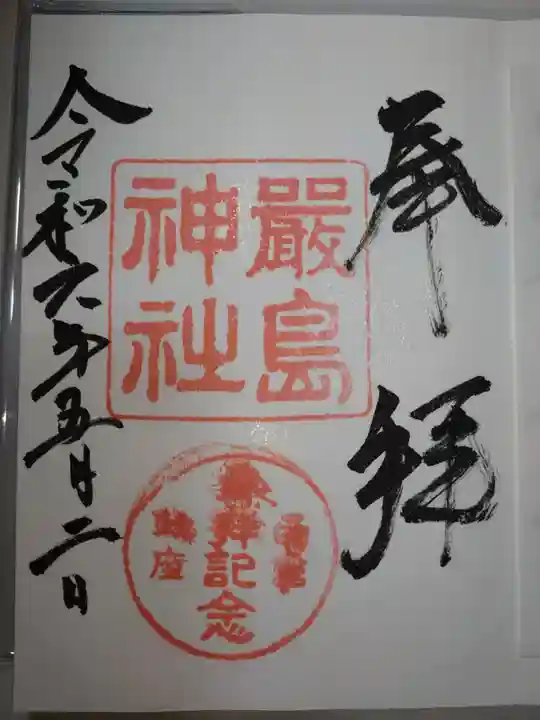 奉拝
嚴島
神社
参拝記念
鎮座
令和六年五月二日